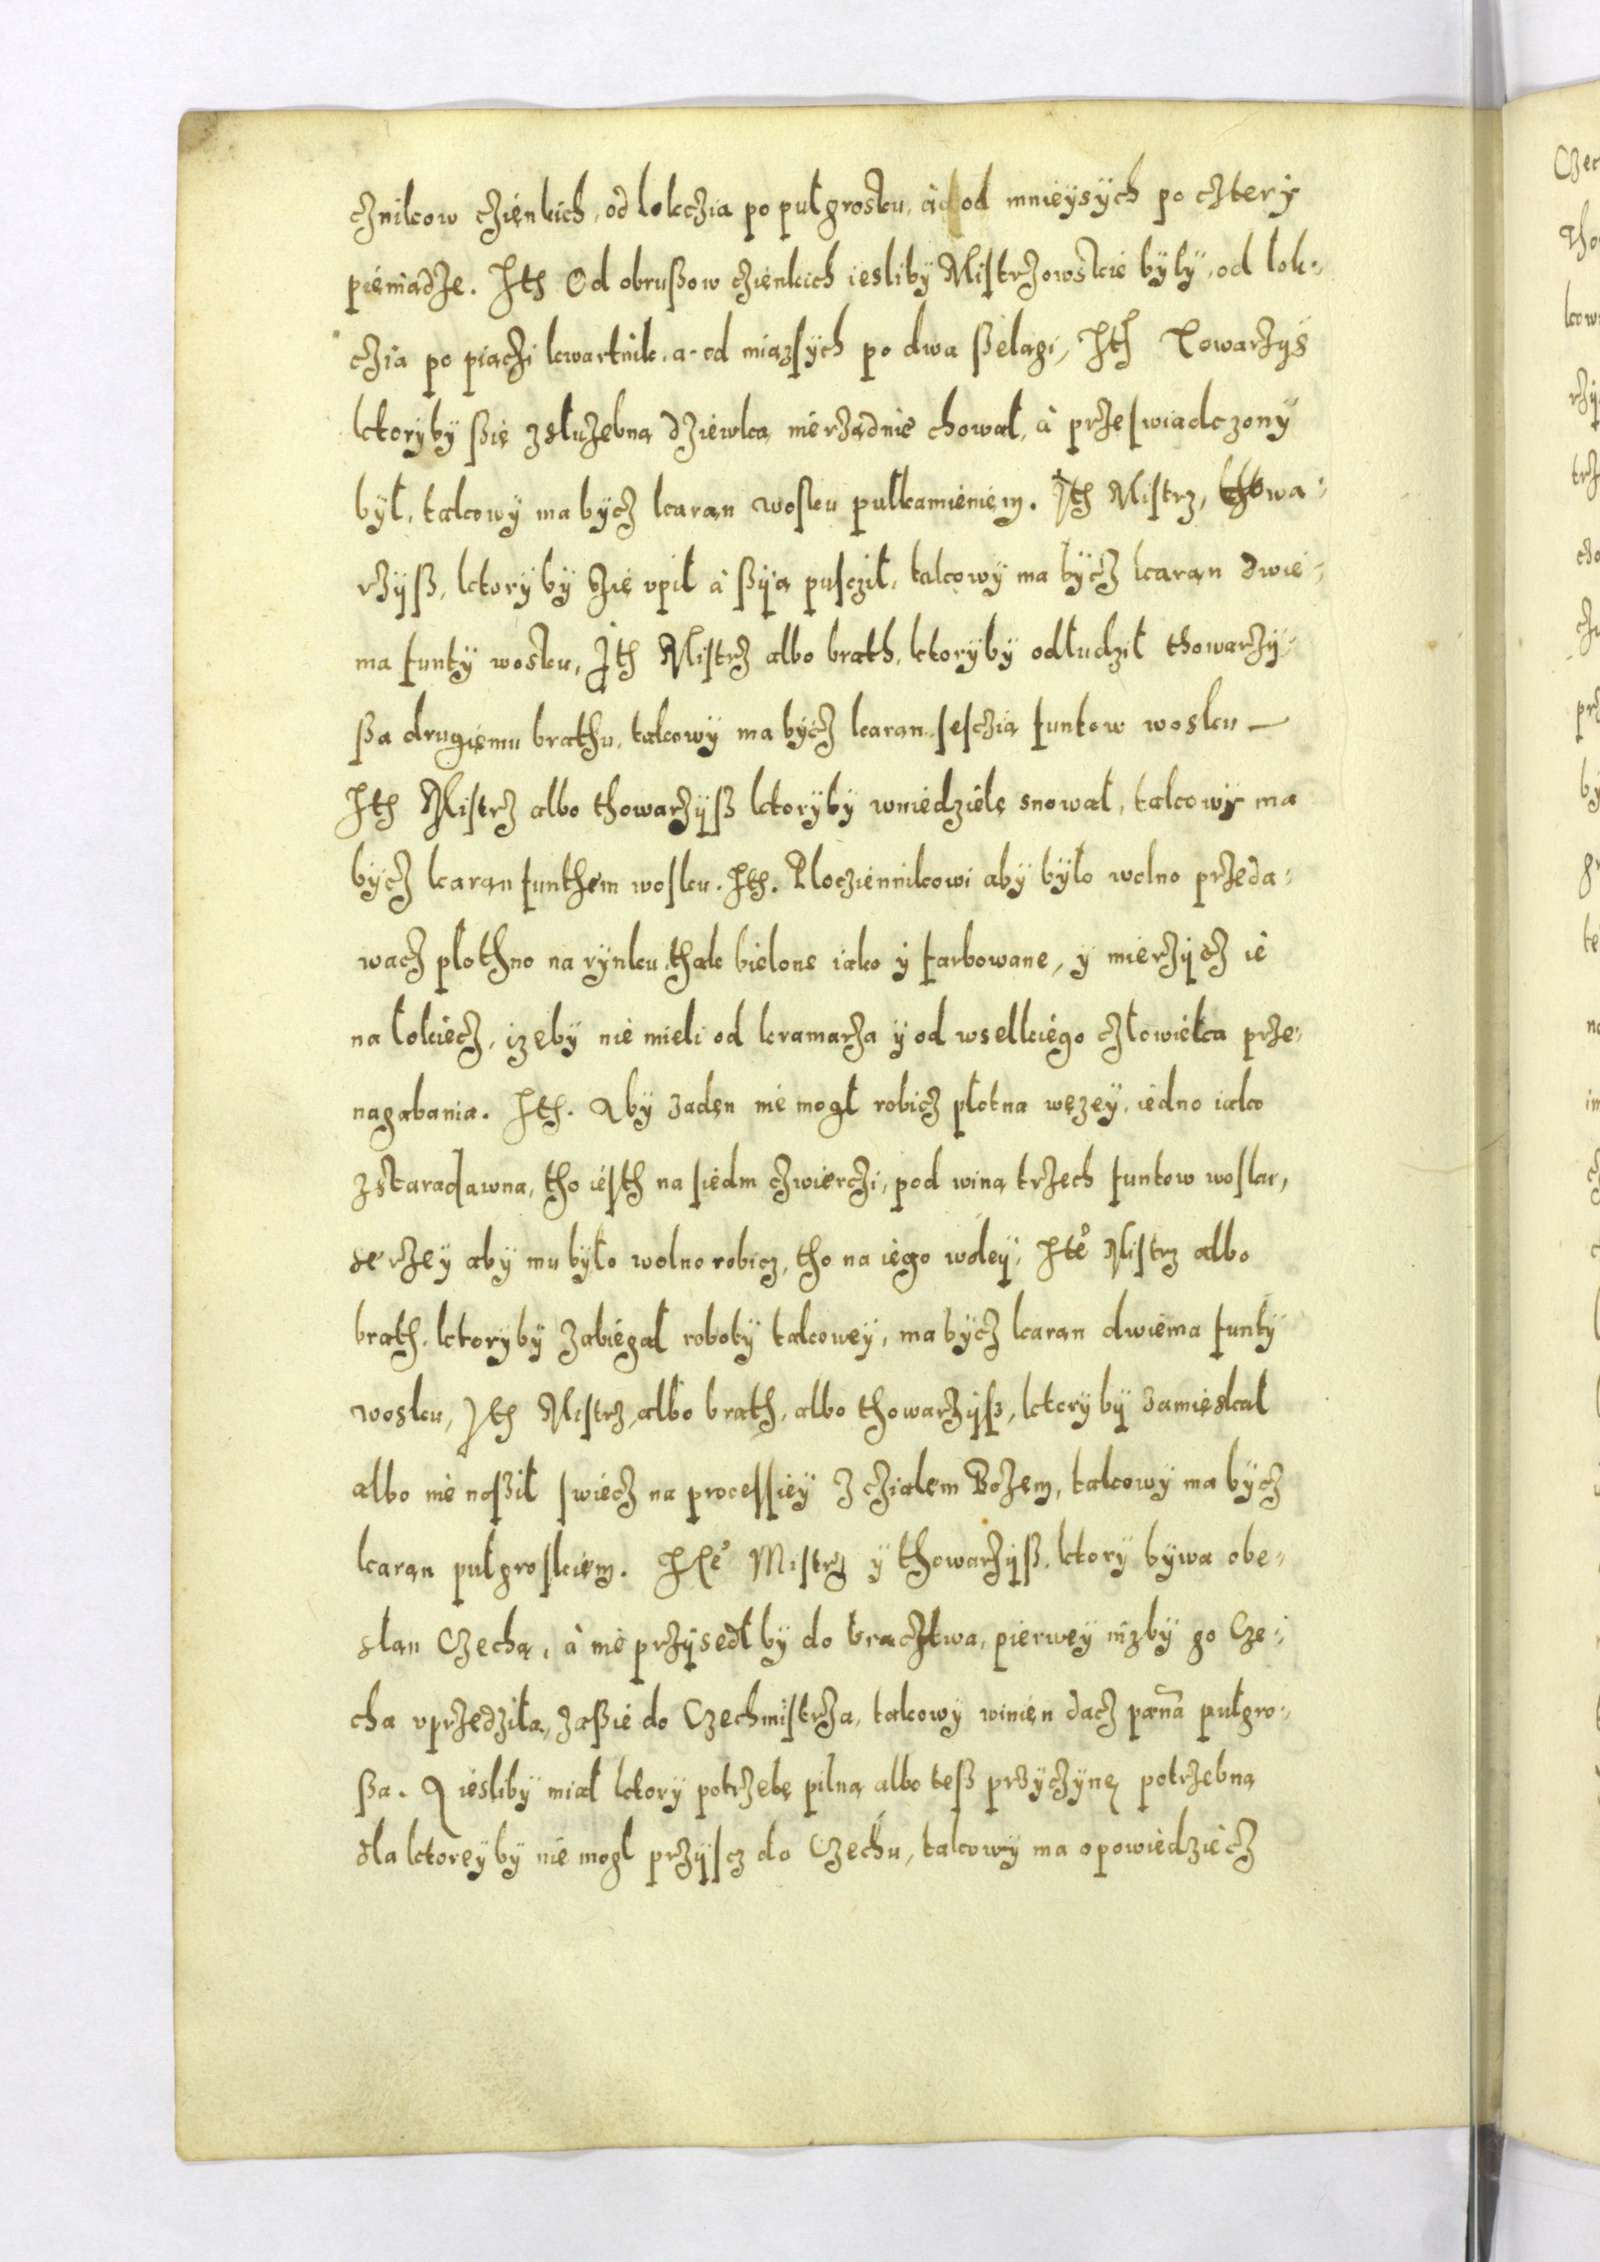 cznikow czienkich, od lokczia po pułgrosku, a od mnieysych po cztery
pieniądze. Ith Od obrußow czienkich iesliby Mistrzowskie byly, od lok-
czia po piaczi kwartnik, a od miąszych po dwa ßelągi, Ith Towarzys
ktoryby ßię zsłuzebną dziewką nierządnie chował, a przeswiadczony
był, takowy ma bycz karan wosku pułkamieniem. Ith Mistrz, thowa-
rzyß, ktoryby zię vpił a ßyią puscził, takowy ma bycz karan dwie-
ma funty wosku, Ith Mistrz albo brath, ktoryby odłudził thowarzy-
ßa drugiemu brathu, takowy ma bycz karan sesczią funtow wosku —
Ith Mistrz albo thowarzyß ktoryby wniedzielę snował, takowy ma
bycz karan funthem wosku. Ith. Płocziennikowi aby było wolno przeda-
wacz płothno na rynku, thak bielone iako y farbowane, y mierzycz ie
na łokiecz, izeby nie mieli od kramarza y od wselkiego człowieka prze-
nagabania. Ith. Aby zaden nie mogł robicz płotna węzey, iedno iako
zstaradawna, tho iesth na siedm czwierczi, pod winą trzech funtow wosku,
serzey aby mu było wolno robicz, tho na iego woley, Ite Mistrz albo
brath, ktoryby zabiegał roboty takowey, ma bycz karan dwiema funty
wosku, Ith Mistrz albo brath, albo thowarzyß, ktoryby zamieskał
albo nie noßił swiecz na processiey z cziałem Bozem, takowy ma bycz
karan pułgroskiem. Ite Mistrz y thowarzyß, ktory bywa obe-
słan Czechą, a nie przysedłby do bracztwa, pierwey nizby go Cze-
cha vprzedziła, zaßie do Czechmistrza, takowy winien dacz pana pułgro-
ßa. A iesliby miał ktory potrzebę pilną albo teß przyczynę potrzebną
dla ktoreyby nie mogl przyscz do Czechu, takowy ma opowiedziecz